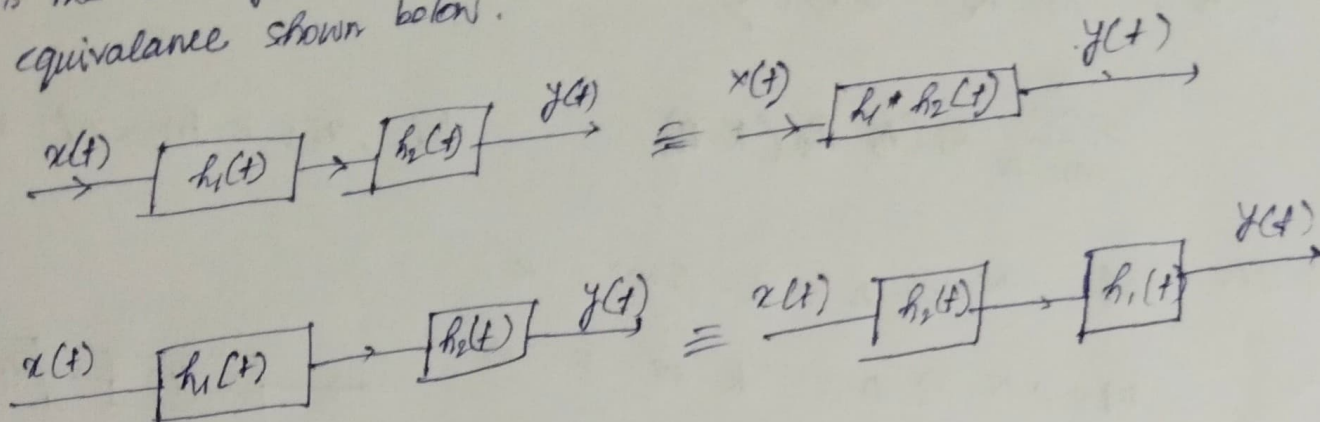 equivalance shown below.
x(t) h₁(t) h₂(t) y(t) ≡ x(t) h₁* h₂(t) y(t)
x(t) h₁(t) h₂(t) y(t) ≡ x(t) h₂(t) h₁(t) y(t)